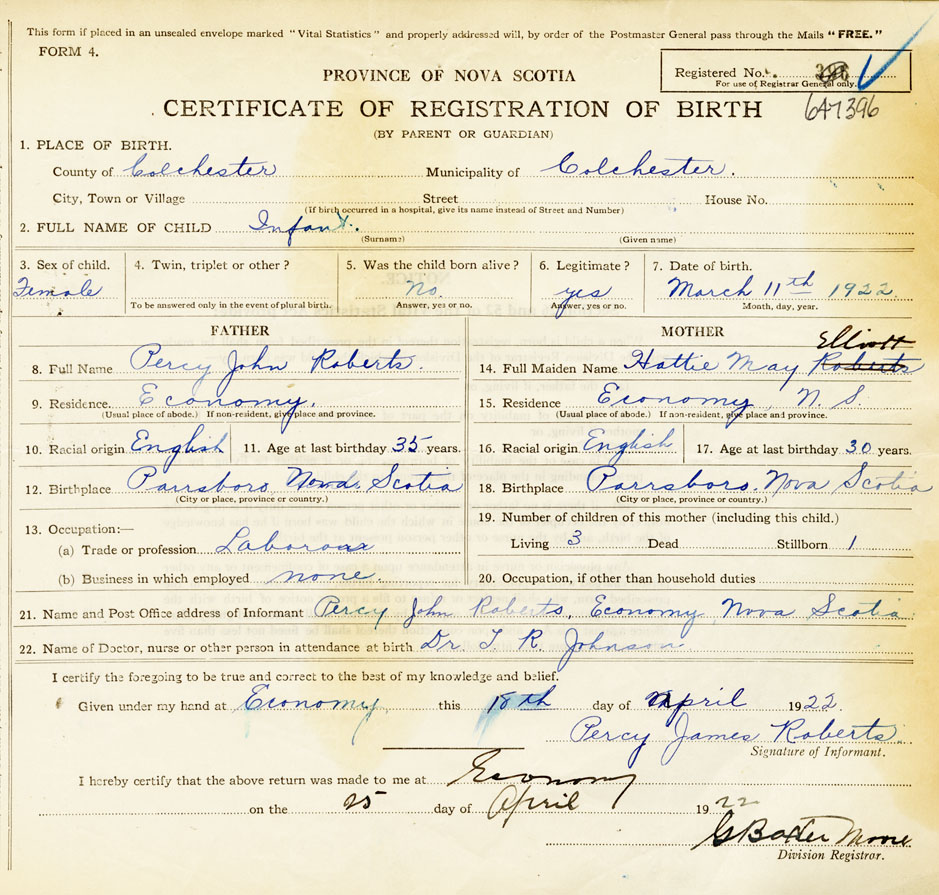 This form if placed in an unsealed envelope marked "Vital Statistics" and properly addressed will, by order of the Postmaster General pass through the Mails "FREE."
FORM 4.
Registered No. 396
For use of Registrar General only.
647396
PROVINCE OF NOVA SCOTIA
CERTIFICATE OF REGISTRATION OF BIRTH
(BY PARENT OR GUARDIAN)
1. PLACE OF BIRTH.
County of Colchester Municipality of Colchester.
City, Town or Village Street House No.
(If birth occurred in a hospital, give its name instead of Street and Number)
2. FULL NAME OF CHILD Infant.
(Surname) (Given name)
3. Sex of child. 4. Twin, triplet or other? 5. Was the child born alive? 6. Legitimate? 7. Date of birth.
Female No. yes March 11th 1922.
To be answered only in the event of plural birth. Answer, yes or no. Answer, yes or no. Month, day, year.
FATHER
8. Full Name Percy John Roberts.
9. Residence. Economy.
(Usual place of abode.) If non-resident, give place and province.
10. Racial origin English 11. Age at last birthday 35 years.
12. Birthplace Parrsboro, Nova. Scotia
(City or place, province or country.)
13. Occupation:—
(a) Trade or profession Laborour
(b) Business in which employed none.
MOTHER
Elliott
14. Full Maiden Name Hattie May Roberts
15. Residence Economy, N. S.
(Usual place of abode.) If non-resident, give place and province.
16. Racial origin English 17. Age at last birthday 30 years.
18. Birthplace Parrsboro. Nova Scotia
(City or place, province or country.)
19. Number of children of this mother (including this child.)
Living 3 Dead Stillborn 1
20. Occupation, if other than household duties
21. Name and Post Office address of Informant Percy John Roberts, Economy Nova Scotia
22. Name of Doctor, nurse or other person in attendance at birth Dr. T. R. Johnson
I certify the foregoing to be true and correct to the best of my knowledge and belief.
Given under my hand at Economy this 18th day of April 1922.
Percy James Roberts.
Signature of Informant.
I hereby certify that the above return was made to me at Economy
on the 25 day of April 1922
G Baxter Moore
Division Registrar.